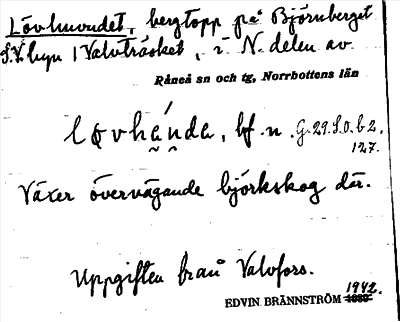 Lövhuvudet, bergtopp på Björnberget
S.V. byn i Valvträsket, i N. delen av
Råneå sn och tg, Norrbottens län
bf. n. G. 29. S. O. b 2.
127.
Växer övervägande björkskog där.
Uppgiften från Valvfors.
1942.
EDVIN BRÄNNSTRÖM 1939